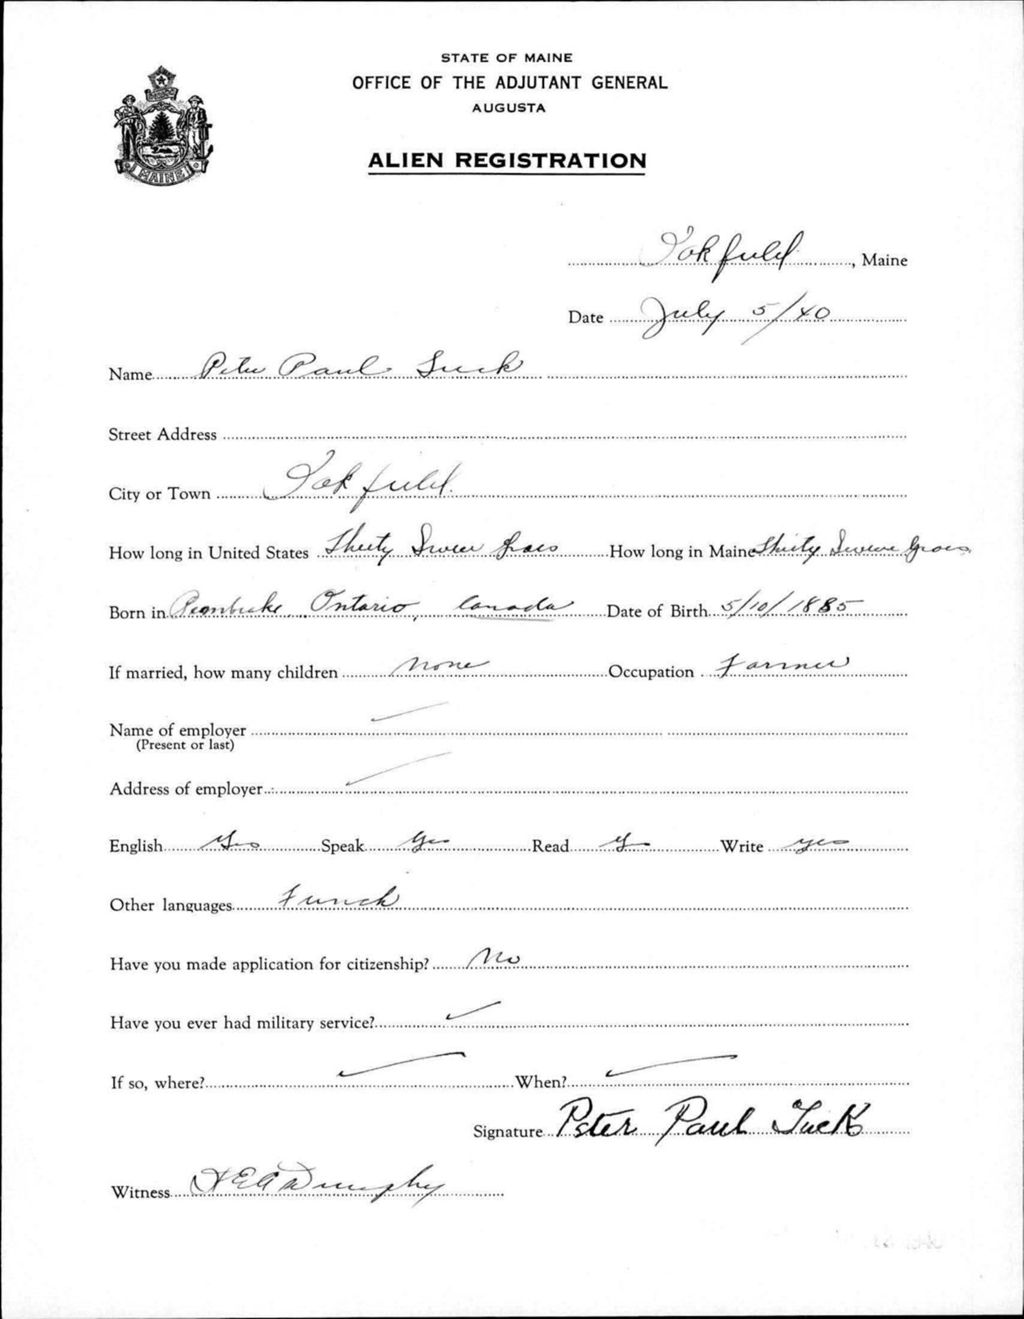 STATE OF MAINE
OFFICE OF THE ADJUTANT GENERAL
AUGUSTA
MAINE
ALIEN REGISTRATION
Oakfield, Maine
Date July 5/40
Name Peter Paul Tuck
Street Address
City or Town Oakfield.
How long in United States Thirty Years How long in Maine Thirty Years
Born in Pembroke Ontario, Canada Date of Birth 5/10/1885
If married, how many children None Occupation Farmer
Name of employer
(Present or last)
Address of employer
English Yes Speak Yes Read Y Write yes
Other languages French
Have you made application for citizenship? No
Have you ever had military service?
If so, where? When?
Signature Peter Paul Tuck
Witness Dunphy